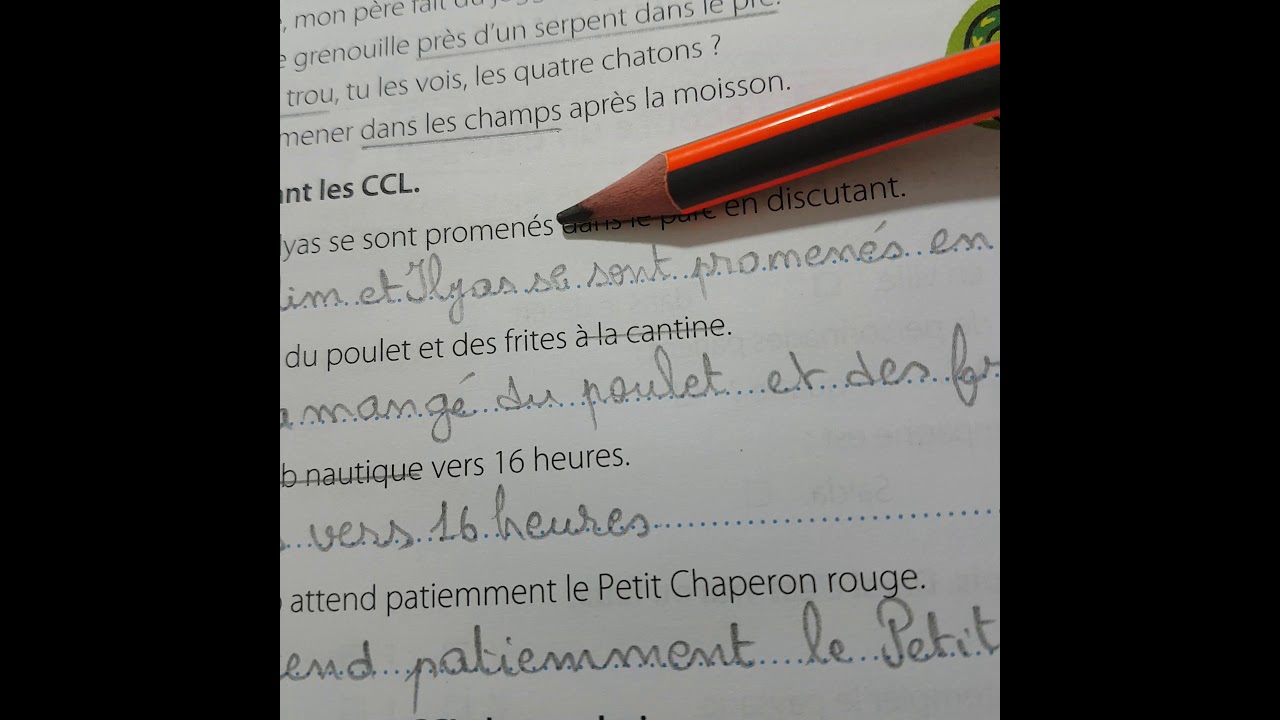 , mon père fait du
grenouille près d'un serpent dans le pré.
trou, tu les vois, les quatre chatons ?
mener dans les champs après la moisson.
nt les CCL.
lyas se sont promenés dans le parc en discutant.
im et Ilyas se sont promenés en
du poulet et des frites à la cantine.
a mangé du poulet et des fr
b nautique vers 16 heures.
s vers 16 heures
attend patiemment le Petit Chaperon rouge.
end patiemment le Petit